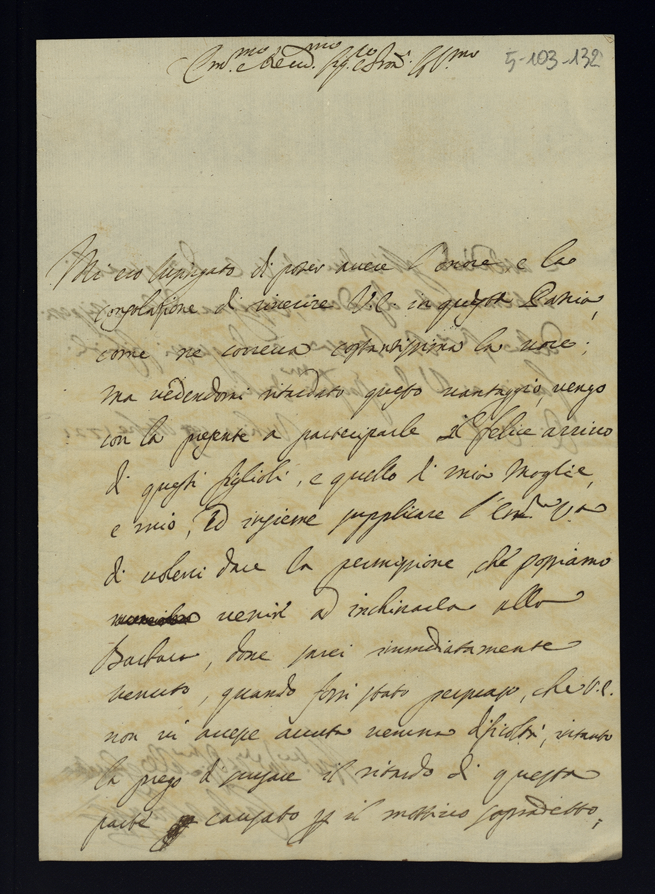 Em.mo e Reud.mo Sig.re e Pron. Col.mo
5-103-132
Mi ero lusingato di poter avere l'onore e la
consolatione di riverire V.E. in questa Patria,
come ne correva costantissima la voce;
ma vedendomi ritardato questo vantaggio vengo
con la presente a parteciparle il felice arrivo
di questi figlioli, e quello di mia Moglie,
e mio, ed insieme supplicare l'Em.za V.ra
di volerci dare la permissione, che possiamo
venir ad inchinarla alla
Barbara, dove sarei immediatamente
venuto, quando fossi stato persuaso, che V.E.
non vi avesse avuta veruna dificoltà, intanto
la prego di scusare il ritardo di questa
parte causato p il mottivo sopradetto,